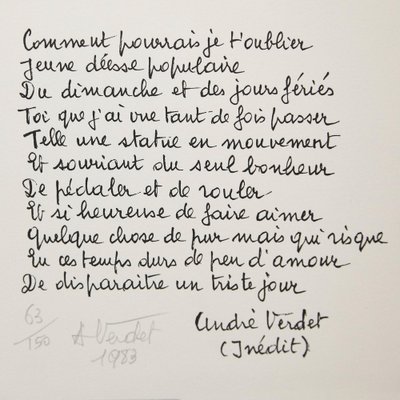 Comment pourrais je t'oublier
Jeune déesse populaire
Du dimanche et des jours fériés
Toi que j'ai vue tant de fois passer
Telle une statue en mouvement
Et souriant du seul bonheur
De pédaler et de rouler
Et si heureuse de faire aimer
Quelque chose de pur mais qui risque
En ces temps durs de peu d'amour
De disparaitre un triste jour
André Verdet
(Inédit)
63/150 A Verdet
1983